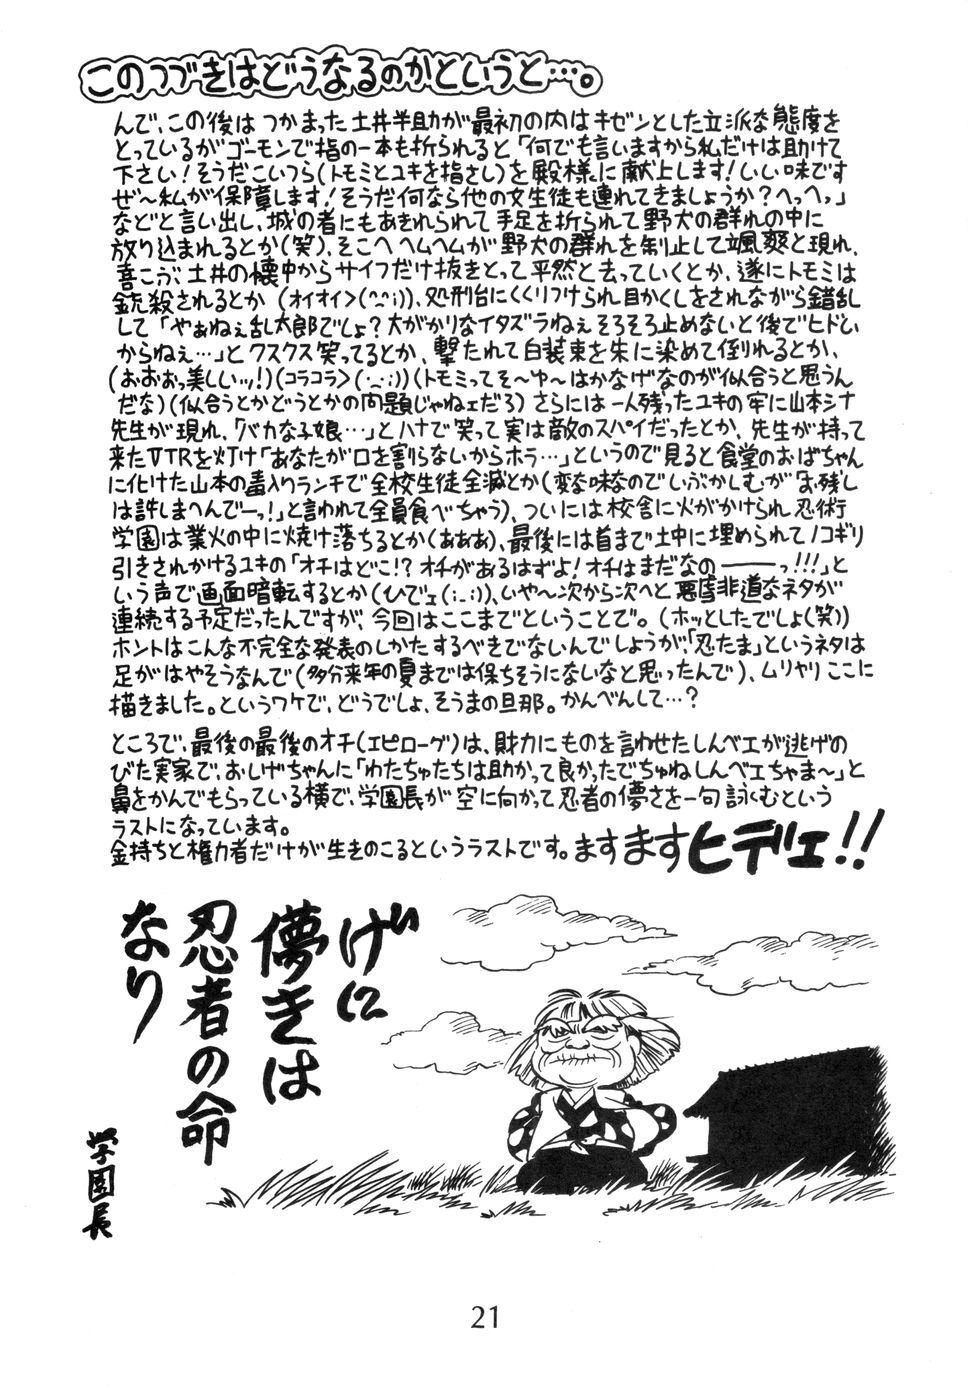 このつづきはどうなるのかというと…。
んで、この後は つかまった土井半助が最初の内はキゼンとした立派な態度を
とっているがゴーモンで指の一本も折られると「何でも言いますから私だけは助けて
下さい！そうだこいつら(トモミとユキを指さし)を殿様に献上します！いい味です
ぜ～私が保障します！そうだ何なら他の女生徒も連れてきましょうか？へっへっ」
などと言い出し、城の者にもあきれられて手足を折られて野犬の群れの中に
放り込まれるとか(笑)、そこへヘムヘムが野犬の群れを制止して颯爽と現れ、
喜こぶ土井の懐中からサイフだけ抜きとって平然と去っていくとか、遂にトモミは
銃殺されるとか (オイオイ>(^_^;))、処刑台にくくりつけられ目かくしをされながら錯乱
して「やぁねぇ乱太郎でしょ？大がかりなイタズラねぇそろそろ止めないと後でヒドい
からねぇ…」とクスクス笑ってるとか、撃たれて白装束を朱に染めて倒れるとか、
(おおおっ美しいッ！)(コラコラ>(^_^;))(トモミってそ～ゆ～はかなげなのが似合うと思うん
だな)(似合うとかどうとかの問題じゃねェだろ) さらには一人残ったユキの牢に山本シナ
先生が現れ、「バカな子娘…」とハナで笑って実は敵のスパイだったとか、先生が持って
来たVTRを灯け「あなたが口を割らないからホラ…」というので見ると食堂のおばちゃん
に化けた山本の毒入りランチで全校生徒全滅とか(変な味なのでいぶかしむが「お残し
は許しまへんでーっ！」と言われて全員食べちゃう)、ついには校舎に火がかけられ忍術
学園は業火の中に焼け落ちるとか(あああ)、最後には首まで土中に埋められてノコギリ
引きされかけるユキの「オチはどこ！？オチがあるはずよ！オチはまだなの―――っ!!!」と
いう声で画面暗転するとか(ひでェ(;_;))、いや～次から次へと悪虐非道なネタが
連続する予定だったんですが、今回はここまでということで。(ホッとしたでしょ(笑))
ホントはこんな不完全な発表のしかたするべきでないんでしょうが、「忍たま」というネタは
足がはやそうなんで(多分来年の夏までは保ちそうにないなと思ったんで)、ムリヤリここに
描きました。というワケで、どうでしょ、そうまの旦那。かんべんして…？
ところで、最後の最後のオチ(エピローグ)は、財力にものを言わせたしんベエが逃げの
びた実家で、おしげちゃんに「わたちゅたちは助かって良かったでちゅねしんベエちゃま～」と
鼻をかんでもらっている横で、学園長が空に向かって忍者の儚さを一句詠むという
ラストになっています。
金持ちと権力者だけが生きのこるというラストです。ますますヒデェ!!
げに
儚きは
忍者の命
なり
学園長
21